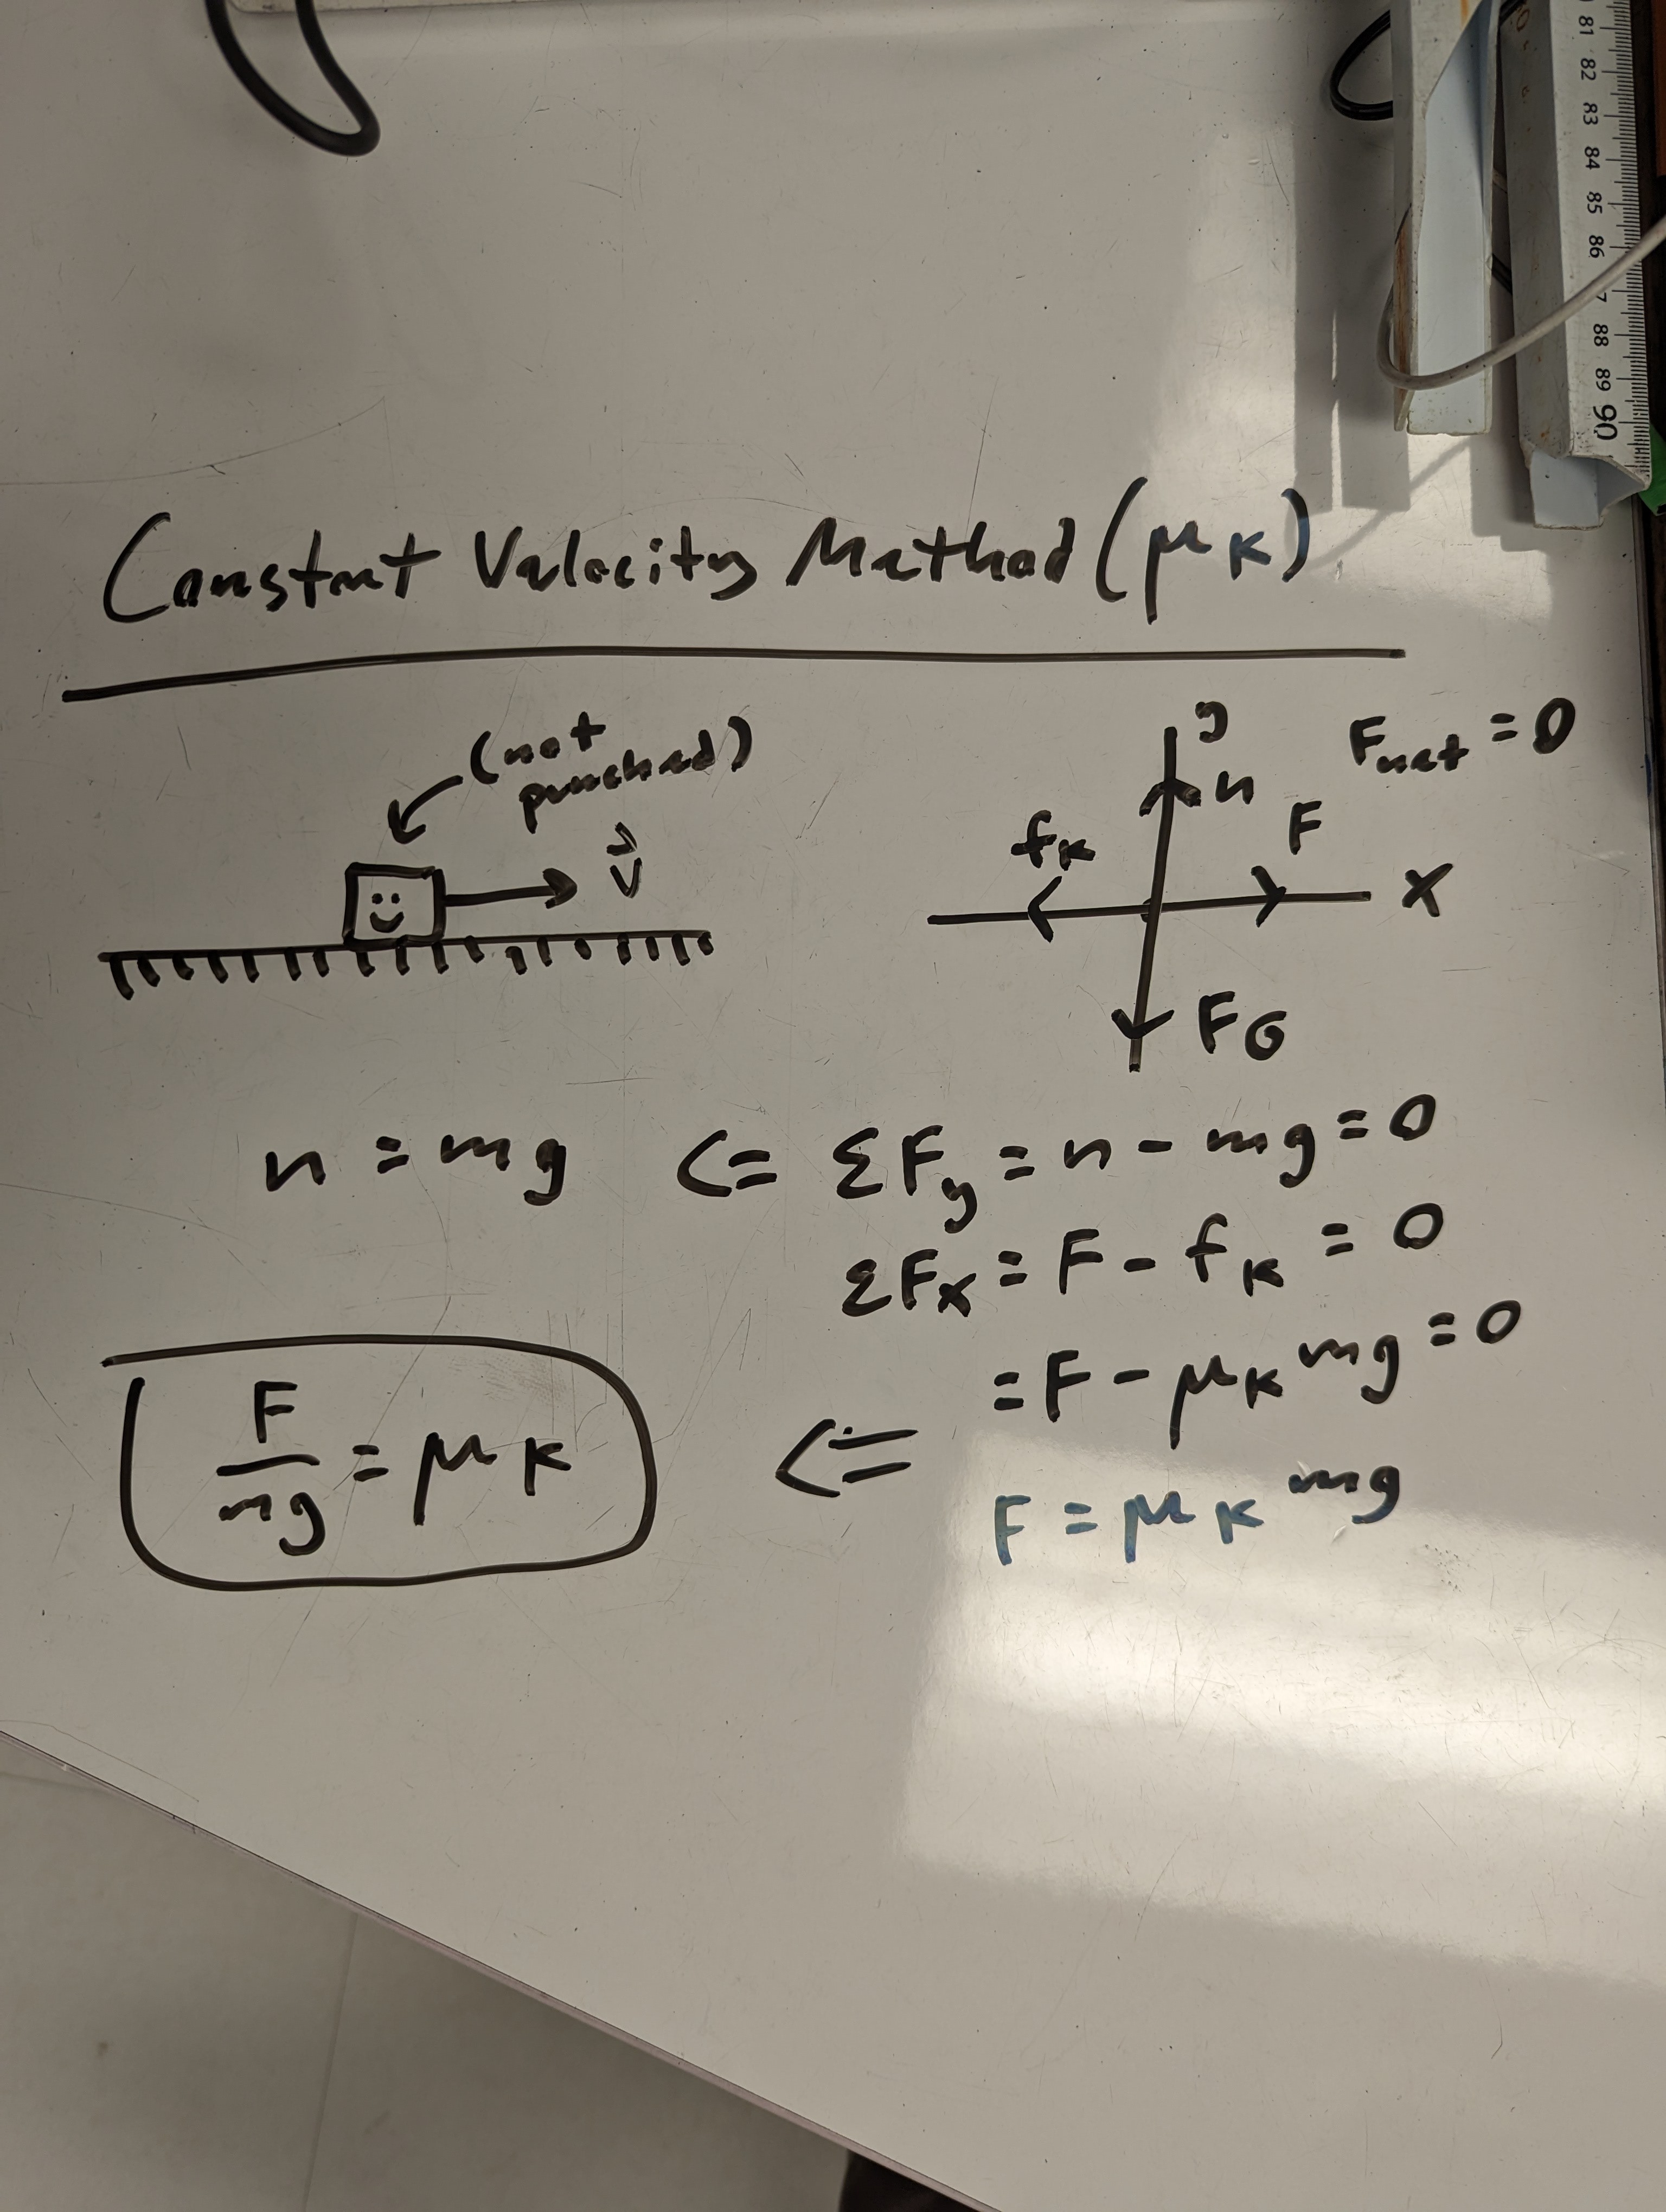 81
82
83
84
85
86
7
88
89
90
Constant Velocity Method (μK)
(not
punched)
v⃗
y
n
Fnet = 0
fK
F
X
FG
n = mg <= ΣFy = n - mg = 0
ΣFx = F - fK = 0
= F - μK mg = 0
F/mg = μK <= F = μK mg